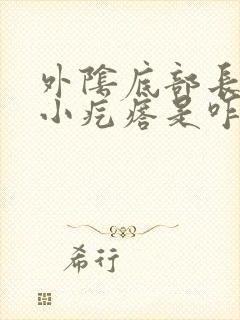 外陰底部長
小疙瘩是咋
希行